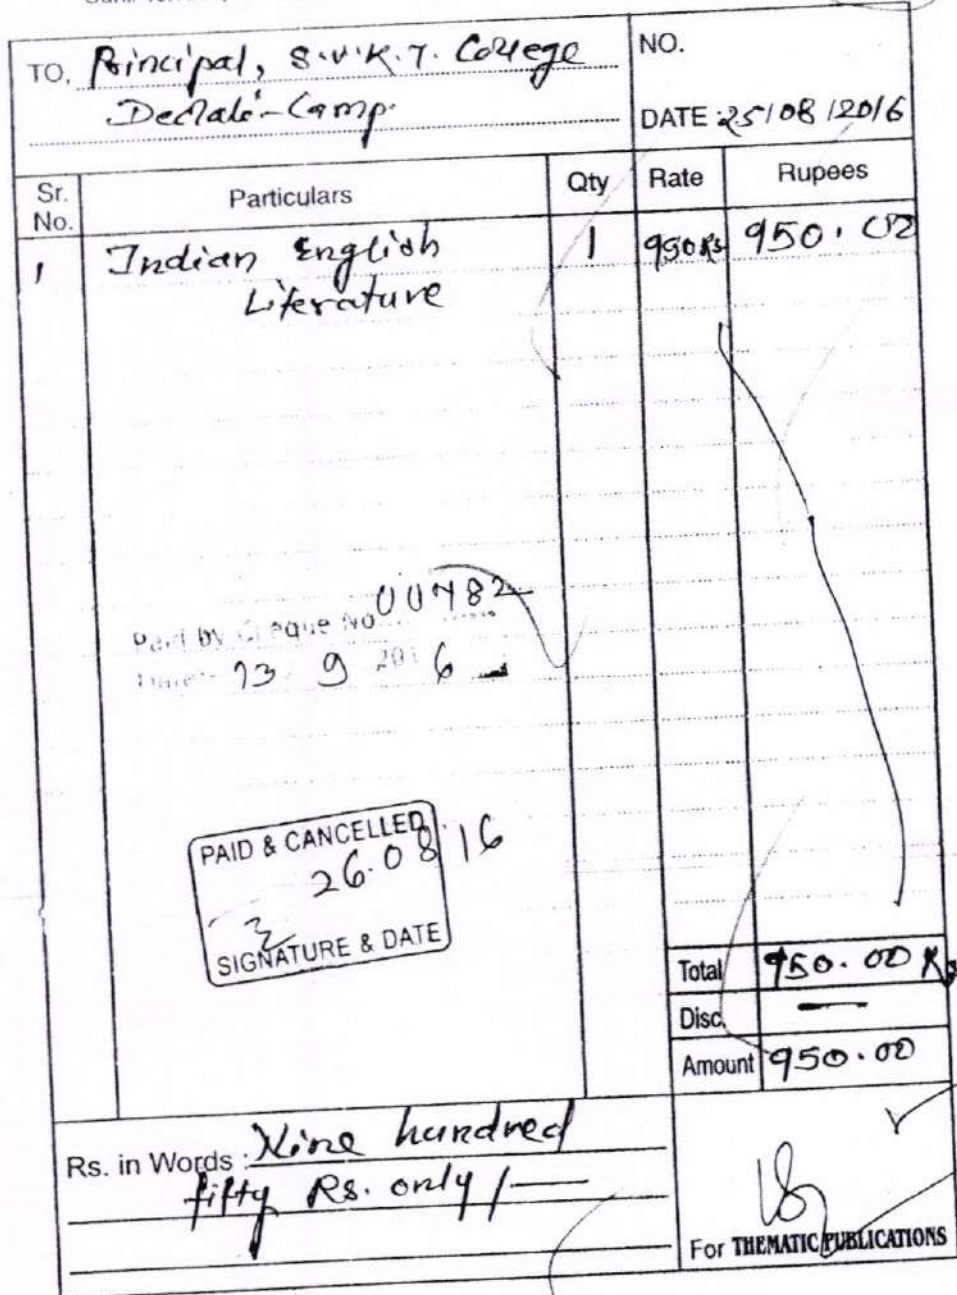 TO, Principal, S.V.K.T. College
Deolali-Camp.
NO.
DATE : 25/08/2016
Sr. No. Particulars Qty Rate Rupees
1 Indian English 1 950 Rs 950.00
Literature
Paid by Cheque No. 00482
Date:- 13 9 2016
PAID & CANCELLED
26.08.16
SIGNATURE & DATE
Total 950.00 Rs
Disc. —
Amount 950.00
Rs. in Words : Nine hundred
fifty Rs. only /—
For THEMATIC PUBLICATIONS